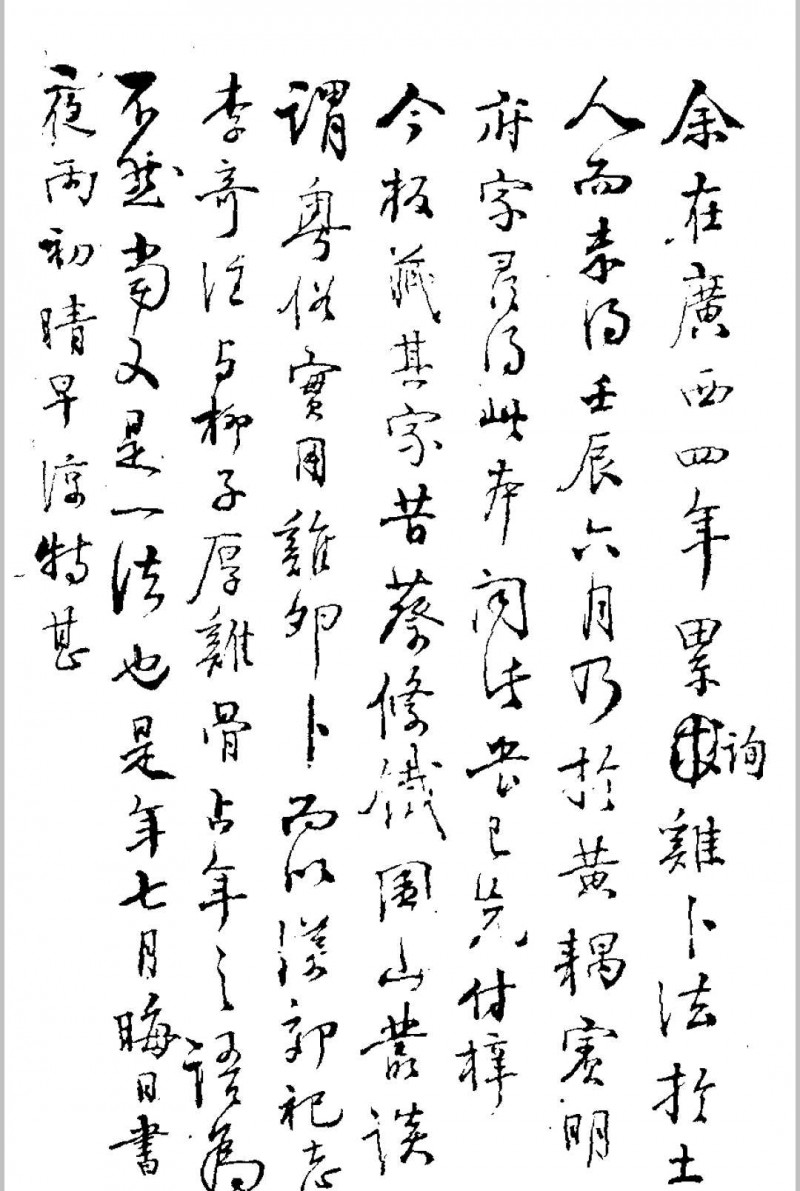 余在廣西四年累詢雞卜法於土
人而未得壬辰六月乃於黃耦賓明
府字尋得此本問法者已先付梓
今板藏其家昔蔡絛鐵圍山叢談
謂粵俗實用雞卵卜而以漢郊祀志
李奇注与柳子厚雞骨占年之語為
不然當又是一法也是年七月晦日書
夜雨初晴早涼特甚